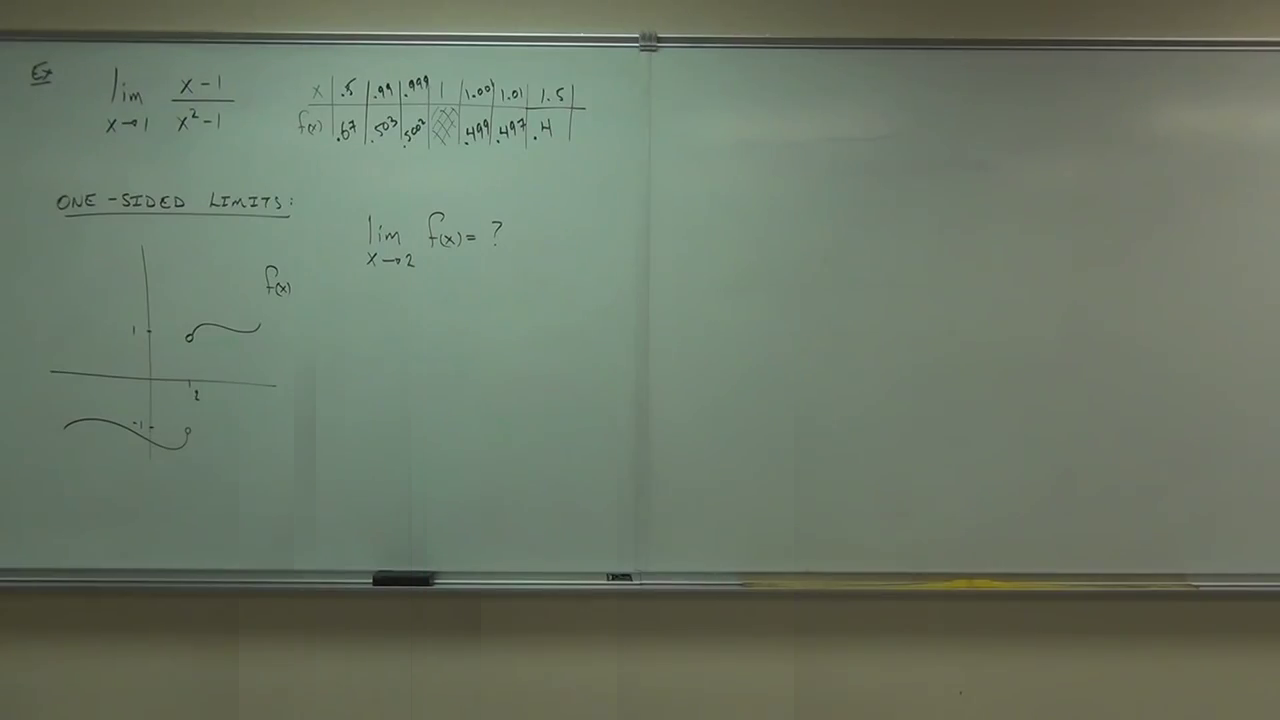 Ex lim x→1 x-1 / x²-1
x | .5 | .99 | .999 | 1 | 1.001 | 1.01 | 1.5
f(x) | .67 | .503 | .5002 | | .499 | .497 | .4
ONE-SIDED LIMITS:
lim x→2 f(x) = ?
f(x)
1
2
-1